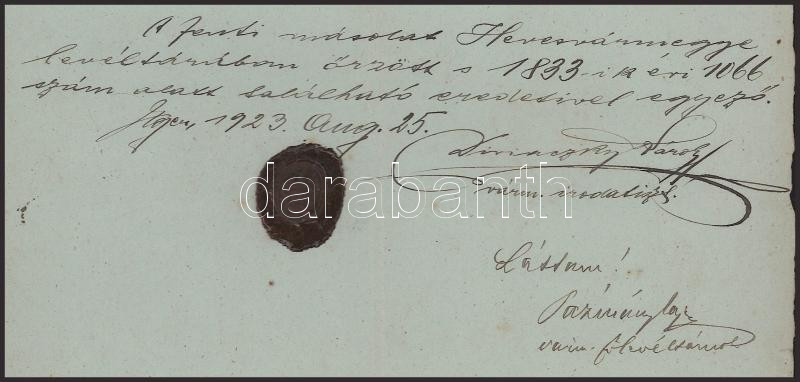 A fenti másolat Hevesvármegye
levéltárában őrzött s 1833-ik évi 1066
szám alatt található eredetivel egyező.
1923. Aug. 25.
Károly
várm. irodatiszt.
darabanth
Láttam!
Pázmány
várm. főlevéltárnok